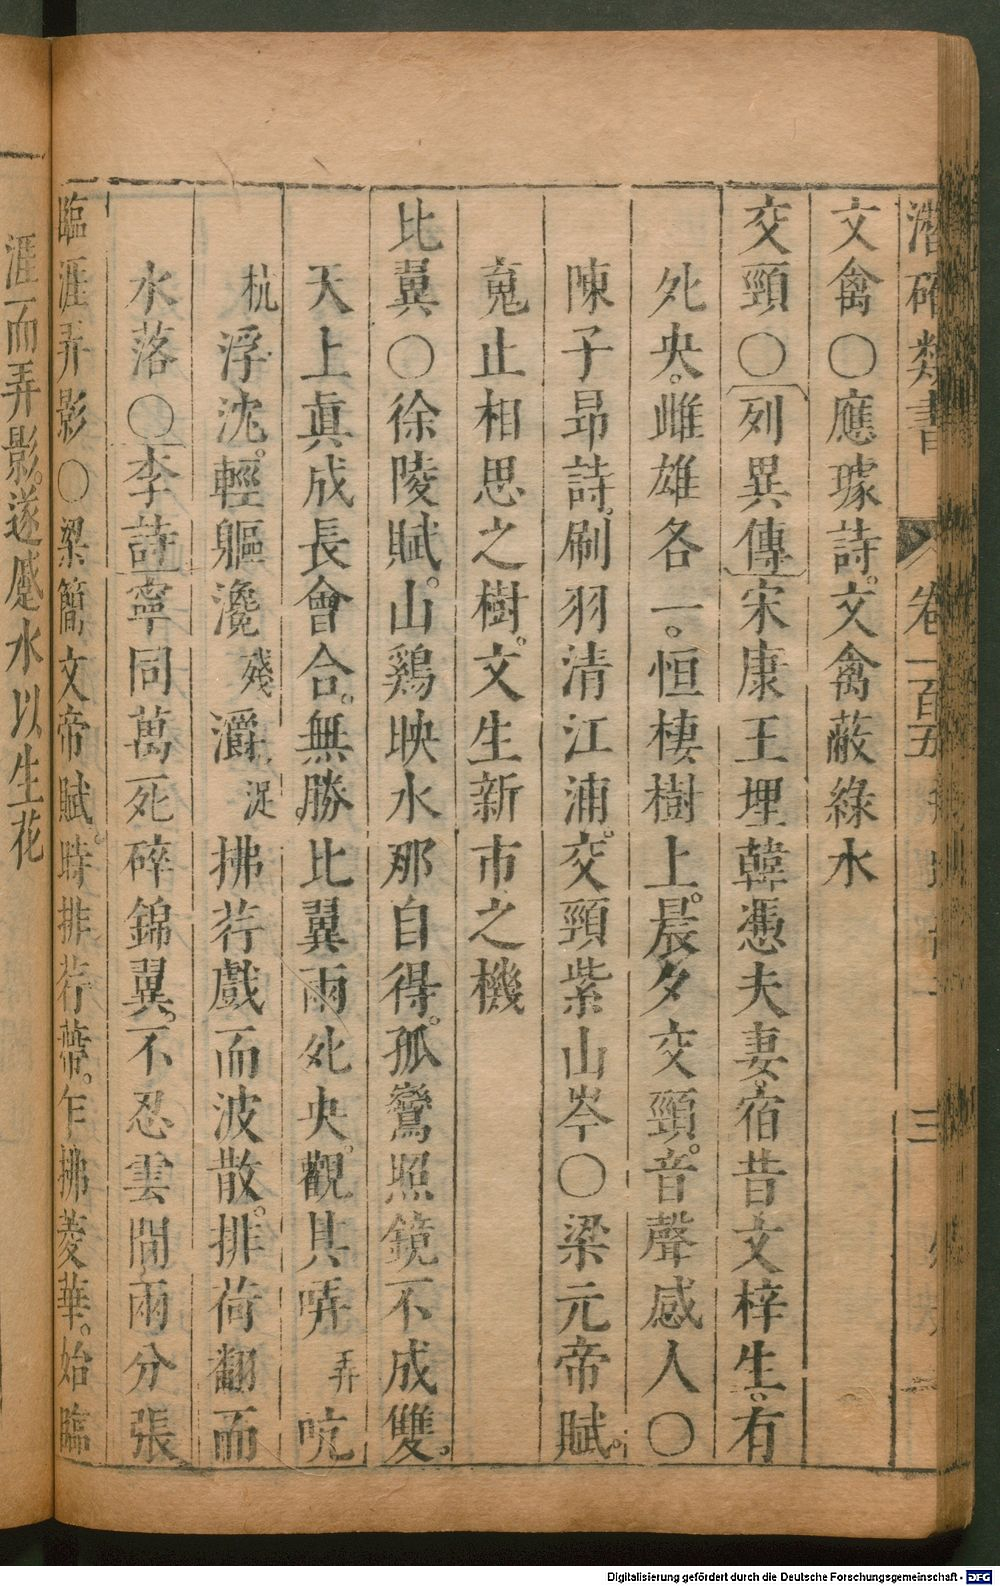 潛確類書 卷一百五 三
文禽○應璩詩。文禽蔽綠水
交頸○列異傳宋康王埋韓憑夫妻宿昔文梓生。有
夗央。雌雄各一。恒棲樹上。晨夕交頸。音聲感人○
陳子昂詩。刷羽清江浦。交頸紫山岑○梁元帝賦。
䓘止相思之樹。文生新市之機
比翼○徐陵賦。山鷄映水那自得。孤鸞照鏡不成雙。
天上眞成長會合。無勝比翼兩夗央。觀其哢弄吭
杭浮沈。輕軀瀺殘灂浞拂荇戲而波散。排荷翻而
水落○李詩寧同萬死碎錦翼。不忍雲間兩分張
臨涯弄影○梁簡文帝賦。時排荇帶。乍拂菱華。始臨
涯而弄影。遂蹙水以生花
Digitalisierung gefördert durch die Deutsche Forschungsgemeinschaft - DFG